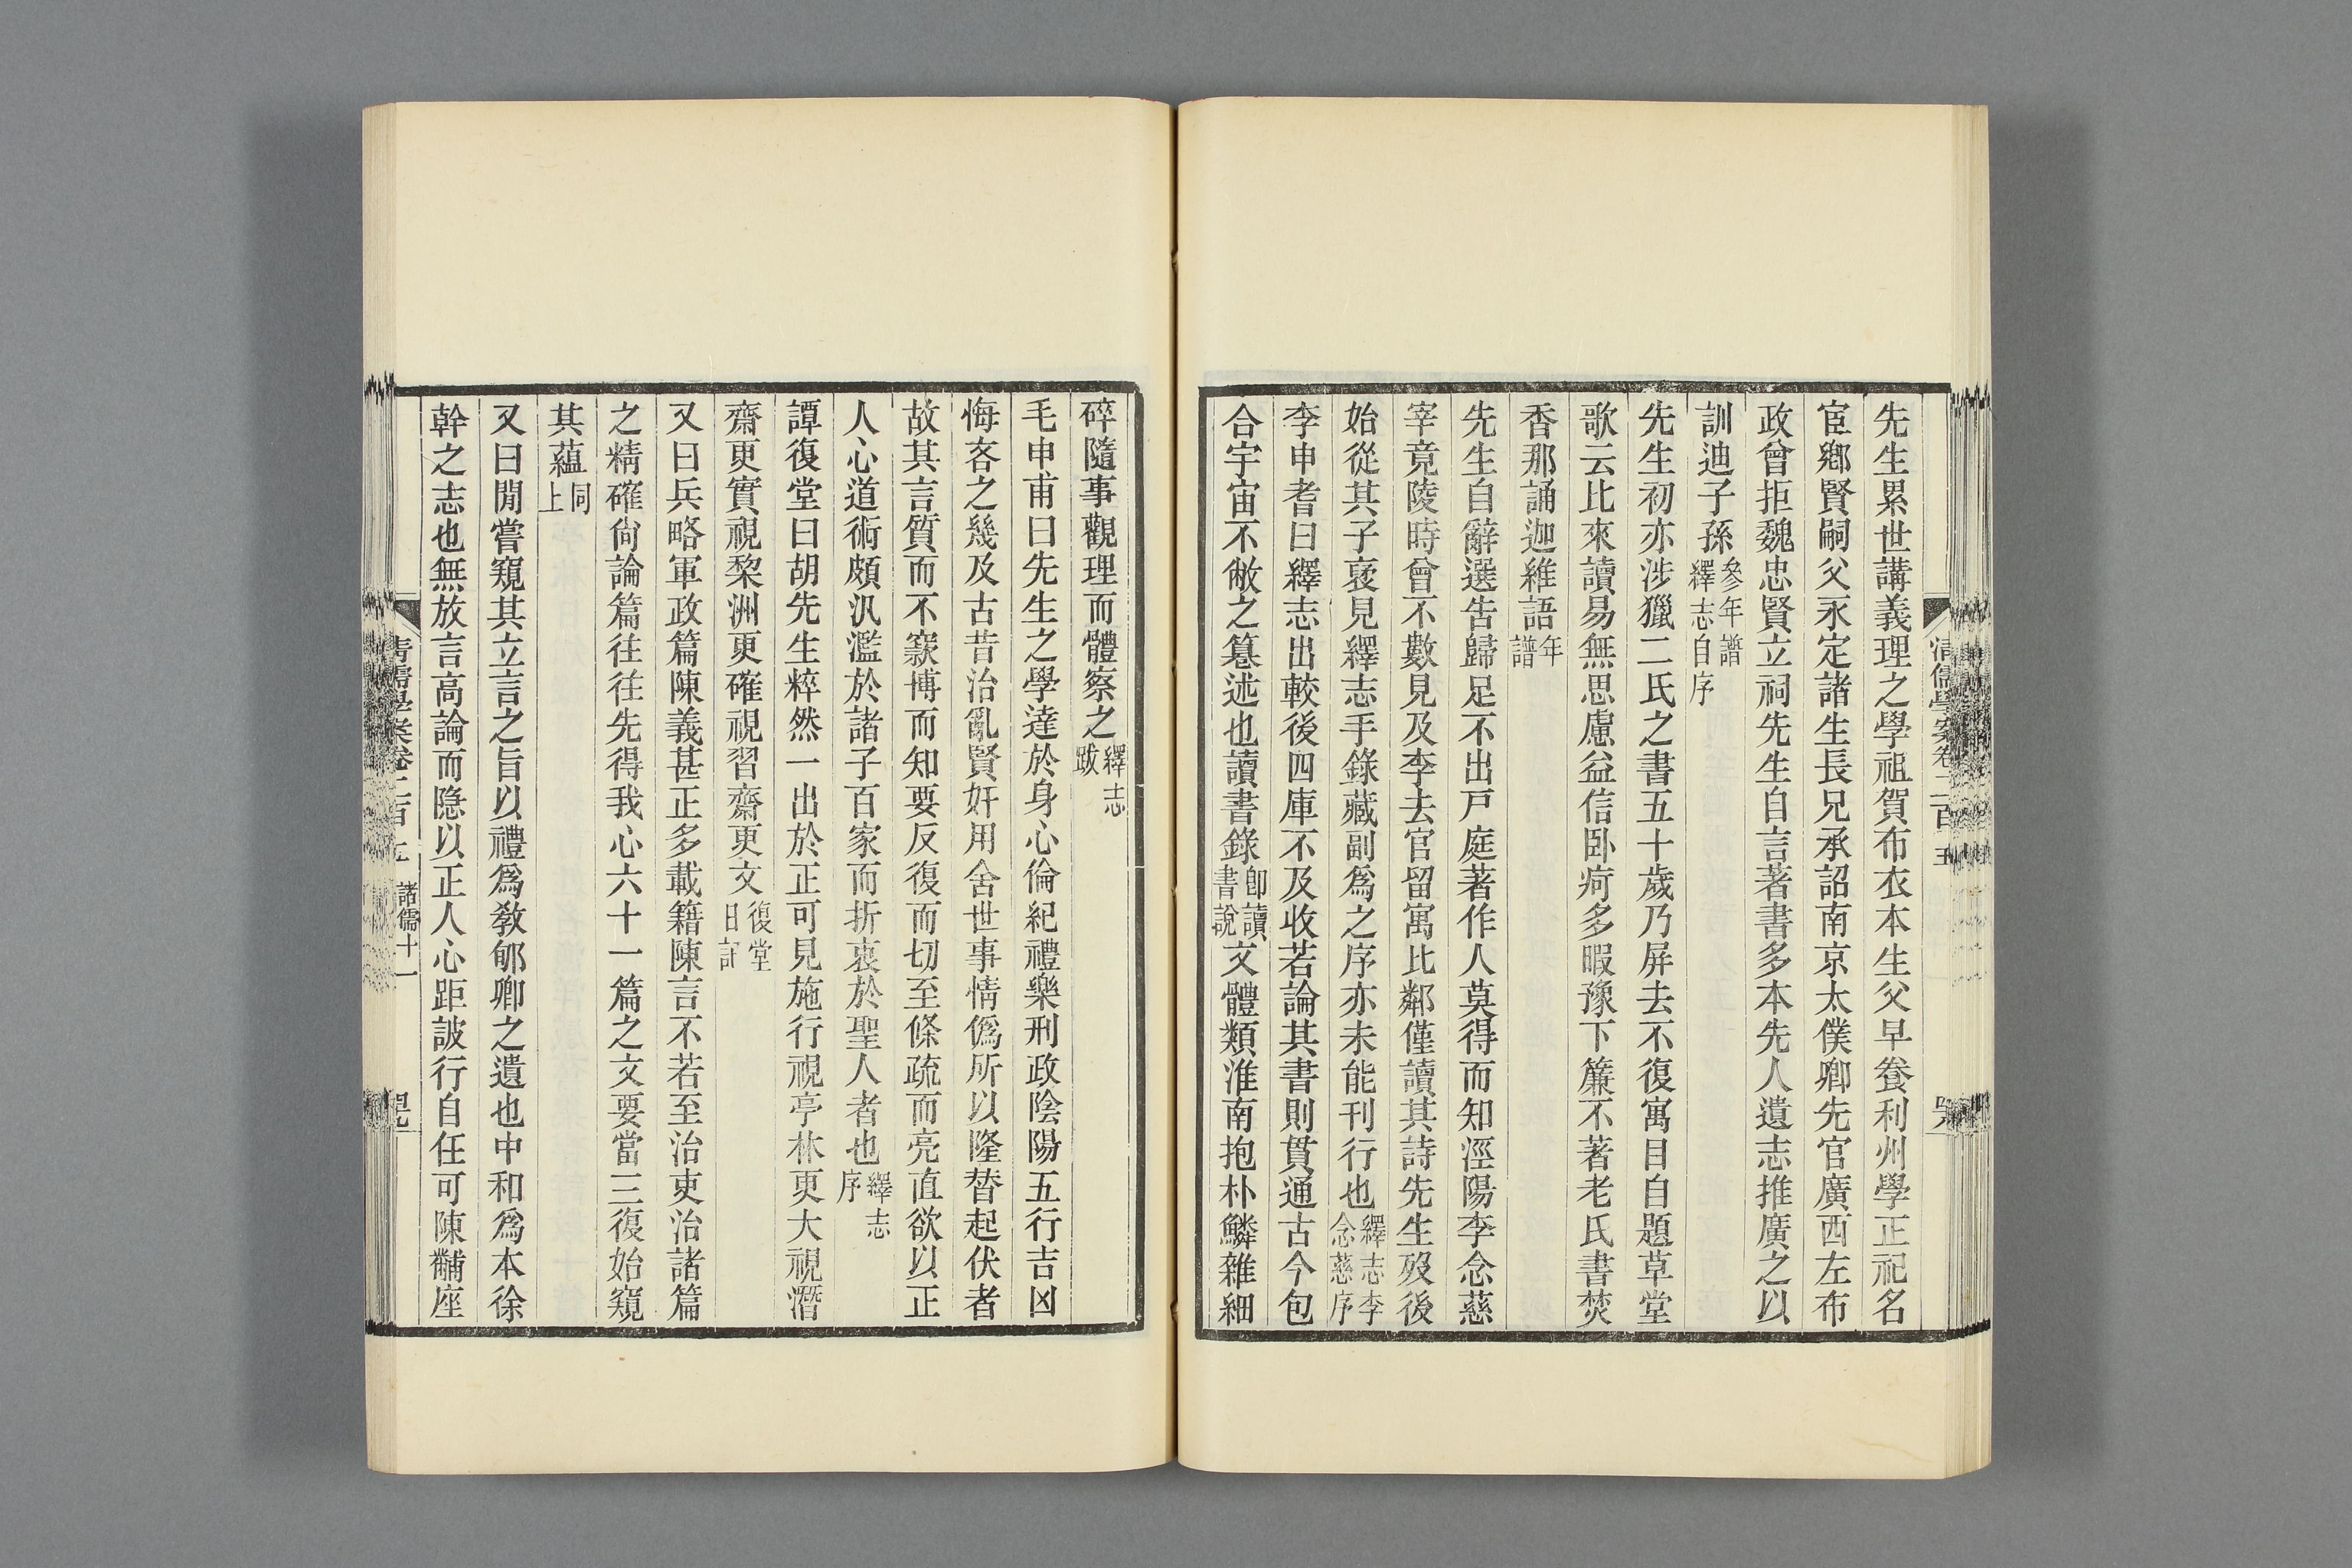 先生累世講義理之學祖賀布衣本生父早養利州學正祀名
宦鄉賢嗣父永定諸生長兄承詔南京太僕卿先官廣西左布
政曾拒魏忠賢立祠先生自言著書多本先人遺志推廣之以
訓迪子孫參年譜繹志自序
先生初亦涉獵二氏之書五十歲乃屏去不復寓目自題草堂
歌云比來讀易無思慮益信卧疴多暇豫下簾不著老氏書焚
香那誦迦維語年譜
先生自辭選告歸足不出戸庭著作人莫得而知涇陽李念慈
宰竟陵時曾不數見及李去官留寓比鄰僅讀其詩先生歿後
始從其子裒見繹志手錄藏副爲之序亦未能刊行也繹志李念慈序
李申耆曰繹志出較後四庫不及收若論其書則貫通古今包
合宇宙不敝之篹述也讀書錄卽讀書說文體類淮南抱朴鱗雜細
清儒學案卷二百五
碎隨事觀理而體察之繹志跋
毛申甫曰先生之學達於身心倫紀禮樂刑政陰陽五行吉凶
悔吝之幾及古昔治亂賢奸用舍世事情僞所以隆替起伏者
故其言質而不窽博而知要反復而切至條疏而亮直欲以正
人心道術頗汎濫於諸子百家而折衷於聖人者也繹志序
譚復堂曰胡先生粹然一出於正可見施行視亭林更大視潛
齋更實視棃洲更確視習齋更文復堂日記
又曰兵略軍政篇陳義甚正多載籍陳言不若至治吏治諸篇
之精確尙論篇往往先得我心六十一篇之文要當三復始窺
其蘊同上
又曰閒嘗窺其立言之旨以禮爲敎郇卿之遺也中和爲本徐
幹之志也無放言高論而隱以正人心距詖行自任可陳黼座
清儒學案卷二百五 諸儒十一